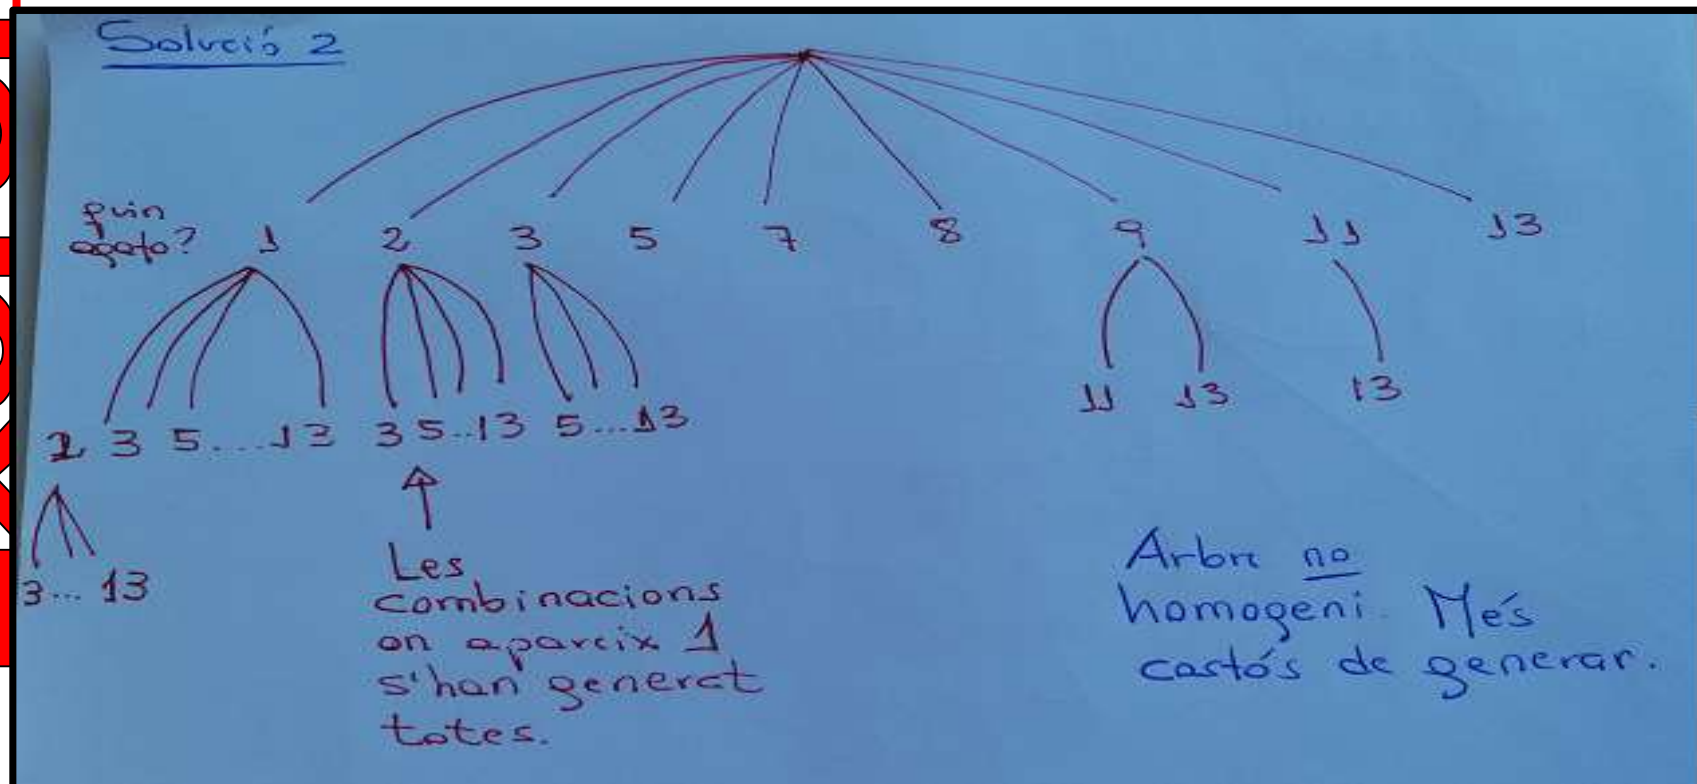 Solució 2
quin
agafo? 1 2 3 5 7 8 9 11 13
11 13 13
2 3 5....13 3 5..13 5...13
3... 13
Les
combinacions
on apareix 1
s'han generat
totes.
Arbre no
homogeni. Més
costós de generar.